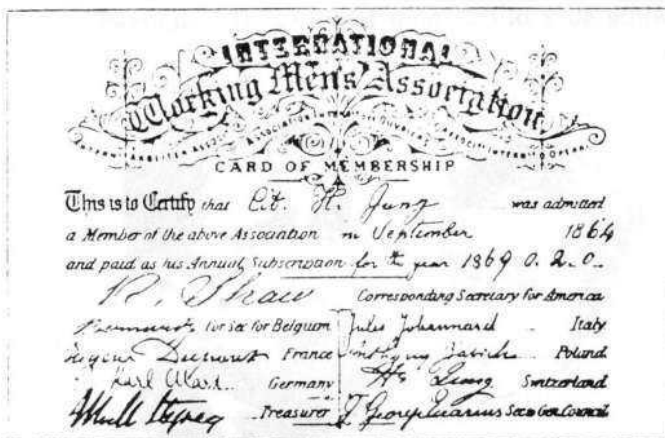 INTERNATIONAL
Working Men's Association
CARD OF MEMBERSHIP
This is to Certify that Cit. H. Jung was admitted
a Member of the above Association in September 1864
and paid as his Annual Subscription for the year 1869 0. 2. 0.
R. Shaw Corresponding Secretary for America
Cor Sec for Belgium Jules Johannard Italy
Eugene Dupont France Anthony Zabicki Poland
Karl Marx Germany H. Jung Switzerland
Treasurer J. George Eccarius Sec. Gen. Council